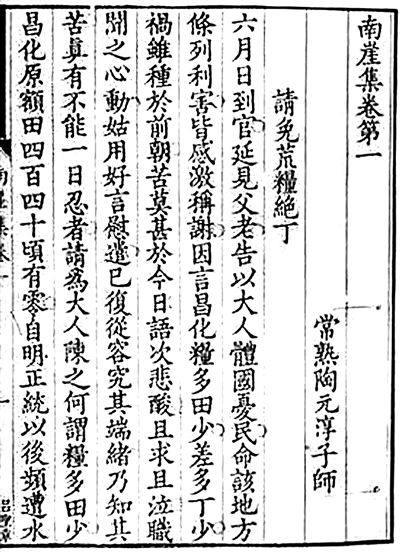 南崖集卷第一
常熟陶元淳子師
請免荒糧絶丁
六月日到官延見父老告以大人體國憂民命該地方
條列利害皆感激稱謝因言昌化糧多田少差多丁少
禍雖種於前朝苦莫甚於今日語次悲酸且求且泣職
聞之心動姑用好言慰遣已復從容究其端緒乃知其
苦真有不能一日忍者請為大人陳之何謂糧多田少
昌化原額田四百四十頃有零自明正統以後頻遭水